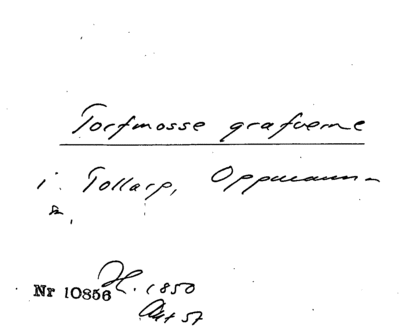 Torfmosse grafverne
i. Tollarp, Oppmanna-
Nr 10856 H. 1850
Akt 57